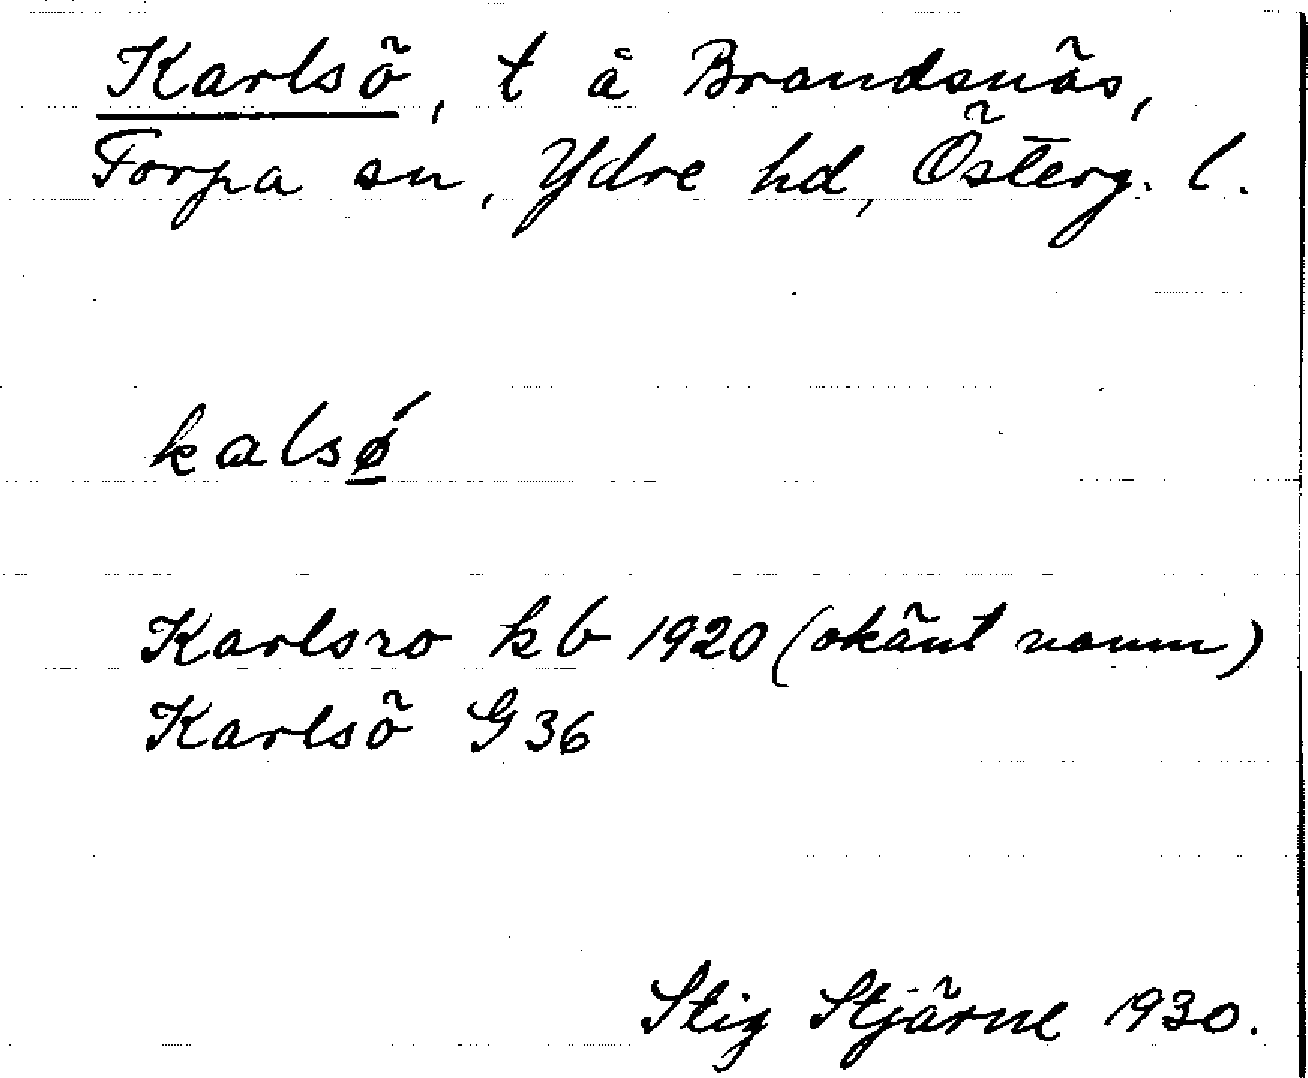 Karlsö, t å Brandsnäs,
Torpa sn, Ydre hd, Österg. l.
kalsǿ
Karlsro kb 1920 (okänt namn)
Karlsö G 36
Stig Stjärne 1930.